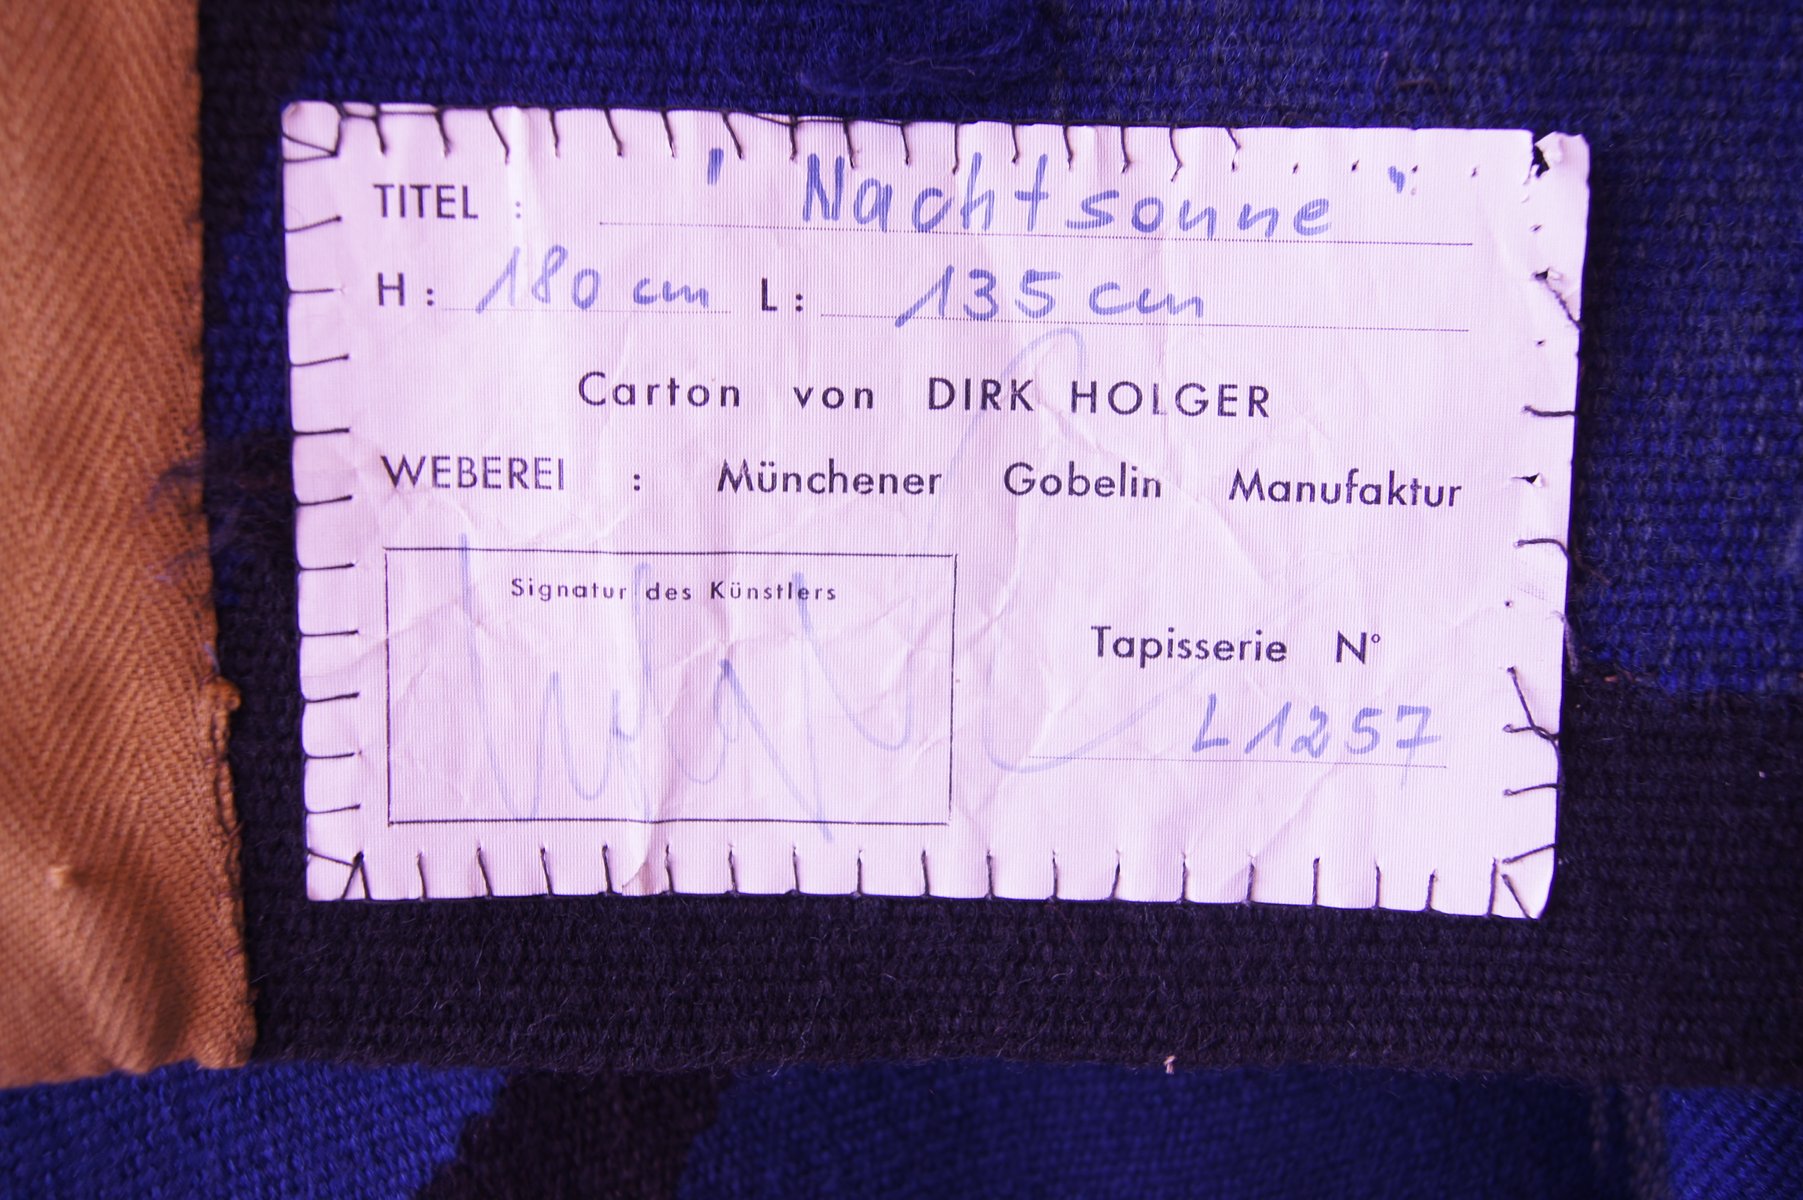 TITEL : " Nachtsonne "
H : 180 cm L : 135 cm
Carton von DIRK HOLGER
WEBEREI : Münchener Gobelin Manufaktur
Signatur des Künstlers
Tapisserie N°
L1257